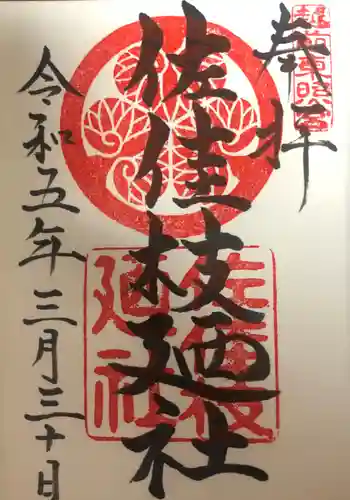 奉拝
越前東照宮
佐佳枝廼社
佐佳枝廼社
令和五年三月三十日